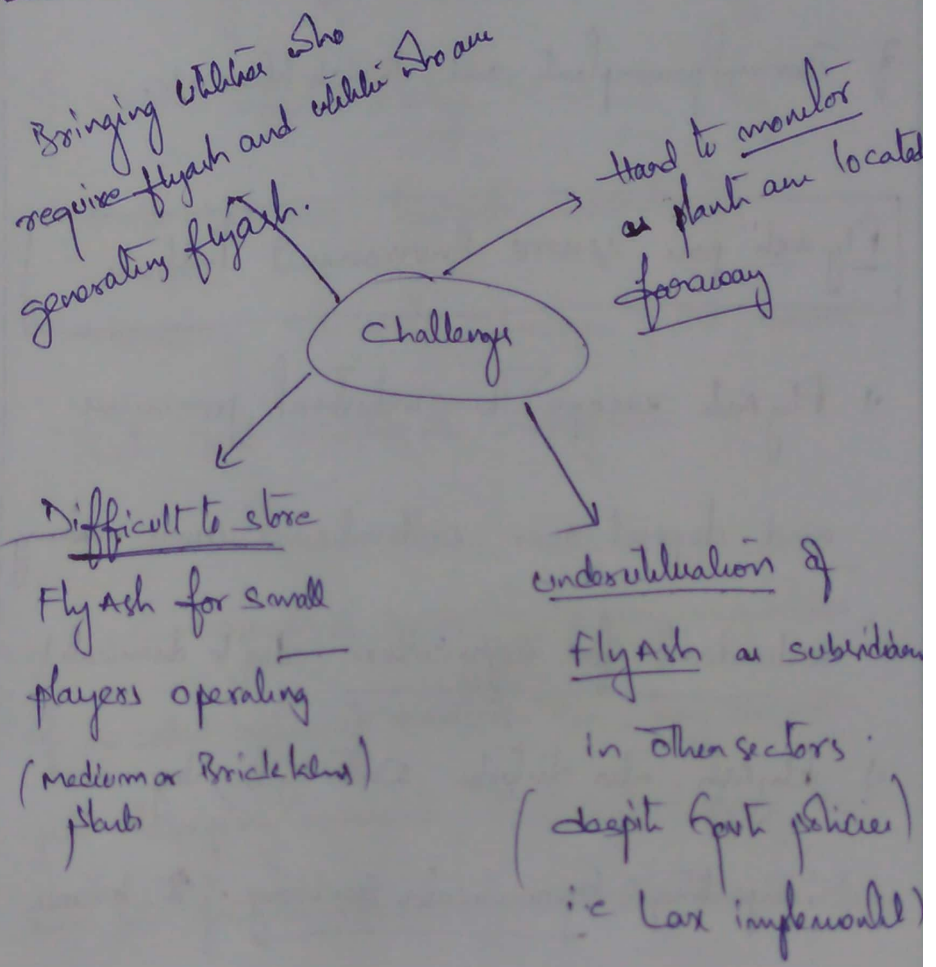 Bringing utilities who
require flyash and utilities who are
generating flyash.
Hard to monitor
as plants are located
faraway
Challenges
Difficult to store
Fly Ash for small
players operating
(medium or Brick kilns)
plants
underutilisation of
Fly Ash as
in other sectors.
(despite Govt policies)
i.e Lax